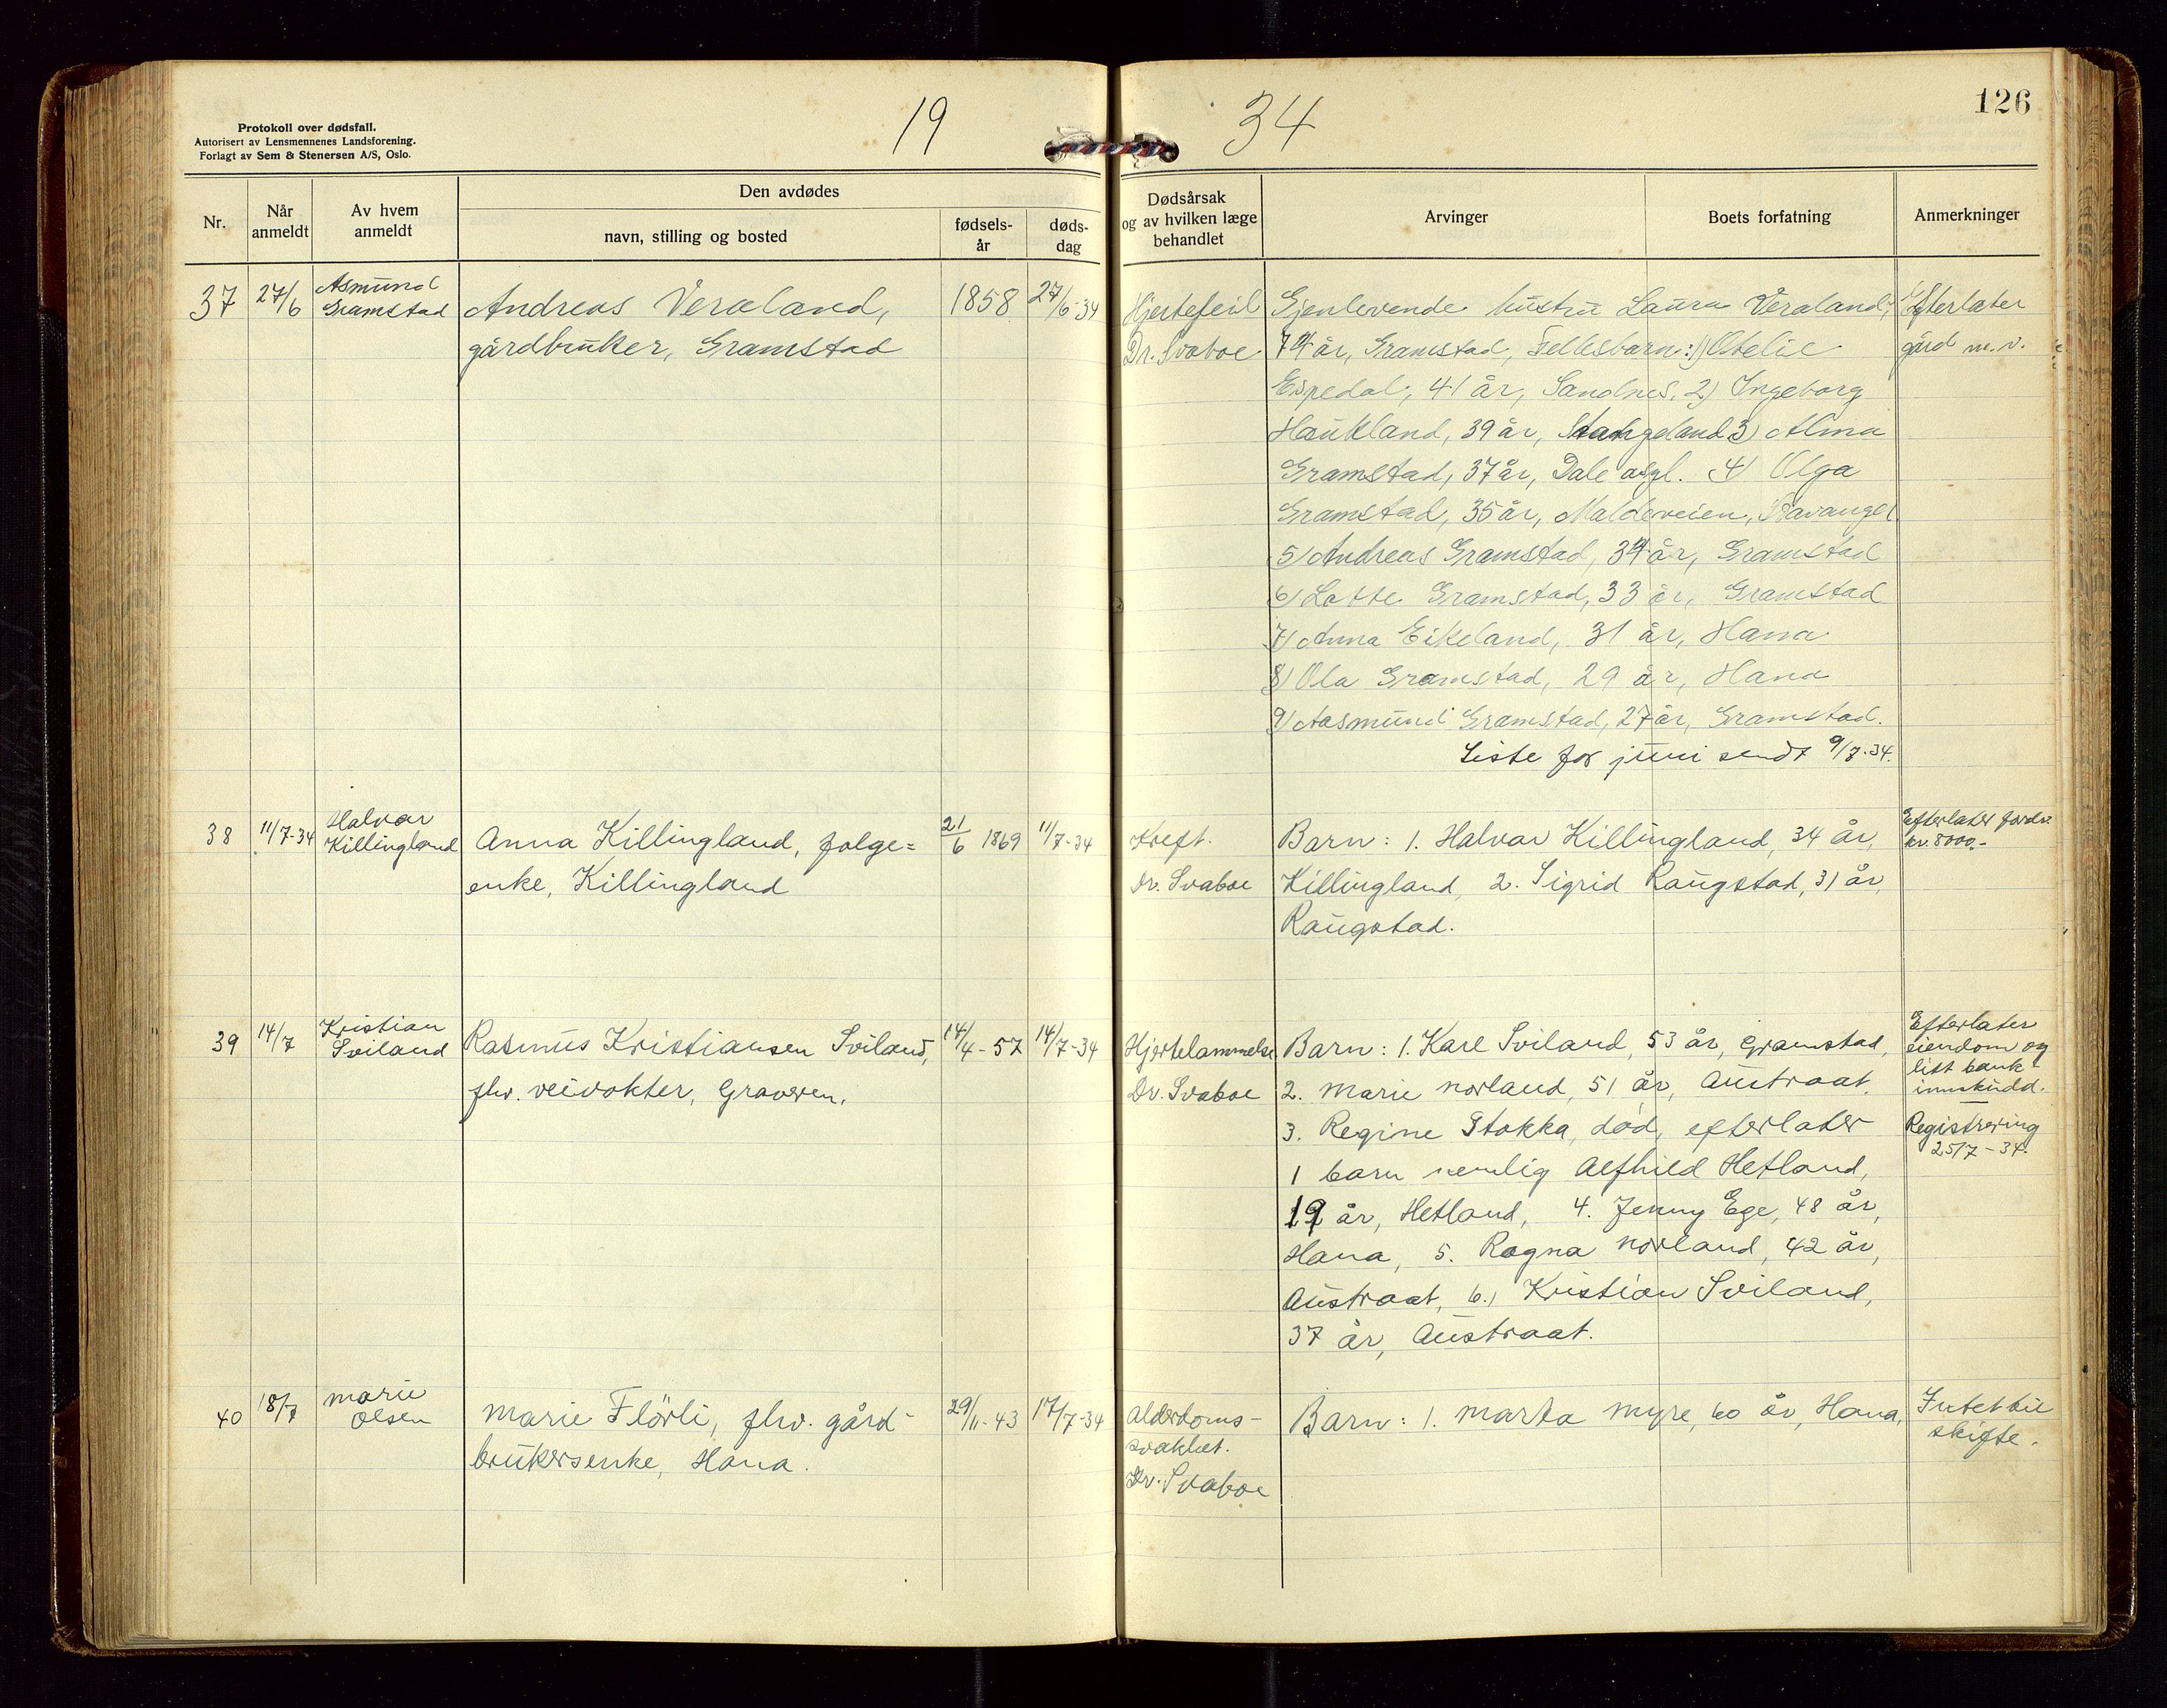 Protokoll over dødsfall.
Autorisert av Lensmennenes Landsforening.
Forlagt av Sem & Stenersen A/S, Oslo.
19
34
126
Nr.
Når anmeldt
Av hvem anmeldt
Den avdødes
navn, stilling og bosted
fødselsår
dødsdag
Dødsårsak
og av hvilken læge
behandlet
Arvinger
Boets forfatning
Anmerkninger
37
27/6
Asmund
Gramstad
Andreas Veraland,
gårdbruker, Gramstad
1858
27/6-34
Hjertefeil
Dr. Svaboe
Gjenlevende hustru Laura Veraland,
74 år, Gramstad, Fellesbarn: 1) Otelie
Espedal, 41 år, Sandnes, 2) Ingeborg
Haukland, 39 år, Stangeland 3) Alma
Gramstad, 37 år, Dale asyl. 4) Olga
Gramstad, 35 år, Maldeveien, Stavanger
5) Andreas Gramstad, 34 år, Gramstad
6) Lotte Gramstad, 33 år, Gramstad
7) Anna Eikeland, 31 år, Hana
8) Ola Gramstad, 29 år, Hana
9) Aasmund Gramstad, 27 år, Gramstad.
Liste for juni sendt 9/7-34.
Efterlater
gård m. v.
38
11/7-34
Halvar
Killingland
Anna Killingland, folge=
enke, Killingland
21/6 1869
11/7-34
Kreft.
Dr. Svaboe
Barn: 1. Halvar Killingland, 34 år,
Killingland, 2. Sigrid Raugstad, 31 år,
Raugstad.
Efterlater fordr.
kr. 8000.-
39
14/7
Kristian
Sviland
Rasmus Kristiansen Sviland,
fhv. veivokter, Graveren.
14/4-57
14/7-34
Hjertelammelse
Dr. Svaboe
Barn: 1. Kare Sviland, 53 år, Gramstad,
2. Marie Norland, 51 år, Austraat.
3. Regine Stokka, død, efterlater
1 barn nemlig Alfhild Hetland,
19 år, Hetland, 4. Jenny Ege, 48 år,
Hana, 5. Ragna Norland, 42 år,
Austraat, 6.) Kristian Sviland,
37 år, Austraat.
Efterlater
eiendom og
litt bank-
innskudd.
Registrering
25/7-34.
40
18/7
Marie
Olsen
Marie Flörli, fhv. gård-
brukersenke, Hana.
29/11-43
17/7-34
Alderdoms-
svakhet.
Dr. Svaboe
Barn: 1. Marta Myre, 60 år, Hana,
Intet bu
skifte.